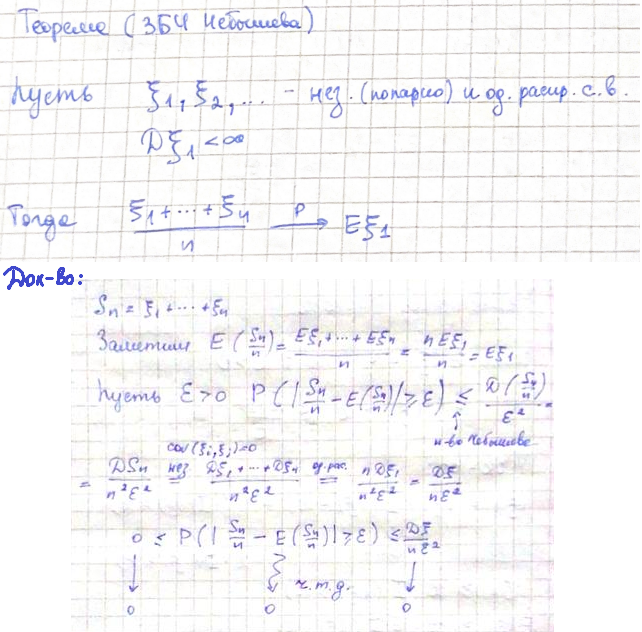 Теорема (ЗБЧ Чебышева)
Пусть ξ₁, ξ₂, ... – нез. (попарно) и од. распр. с.в.
Dξ₁ < ∞
Тогда (ξ₁ + ··· + ξₙ)/n →ᴾ Eξ₁
Док-во:
Sₙ = ξ₁ + ··· + ξₙ
Заметим E(Sₙ/n) = (Eξ₁ + ··· + Eξₙ)/n = nEξ₁/n = Eξ₁
Пусть ε > 0 P(|Sₙ/n − E(Sₙ/n)| ≥ ε) ≤ D(Sₙ/n)/ε² =
н-во Чебышева
cov(ξᵢ, ξⱼ) = 0
= DSₙ/n²ε² =(нез) (Dξ₁ + ··· + Dξₙ)/n²ε² =(од. рас.) nDξ₁/n²ε² = Dξ/nε²
0 ≤ P(|Sₙ/n − E(Sₙ/n)| ≥ ε) ≤ Dξ/nε²
↓ ↓ ч.т.д. ↓
0 0 0